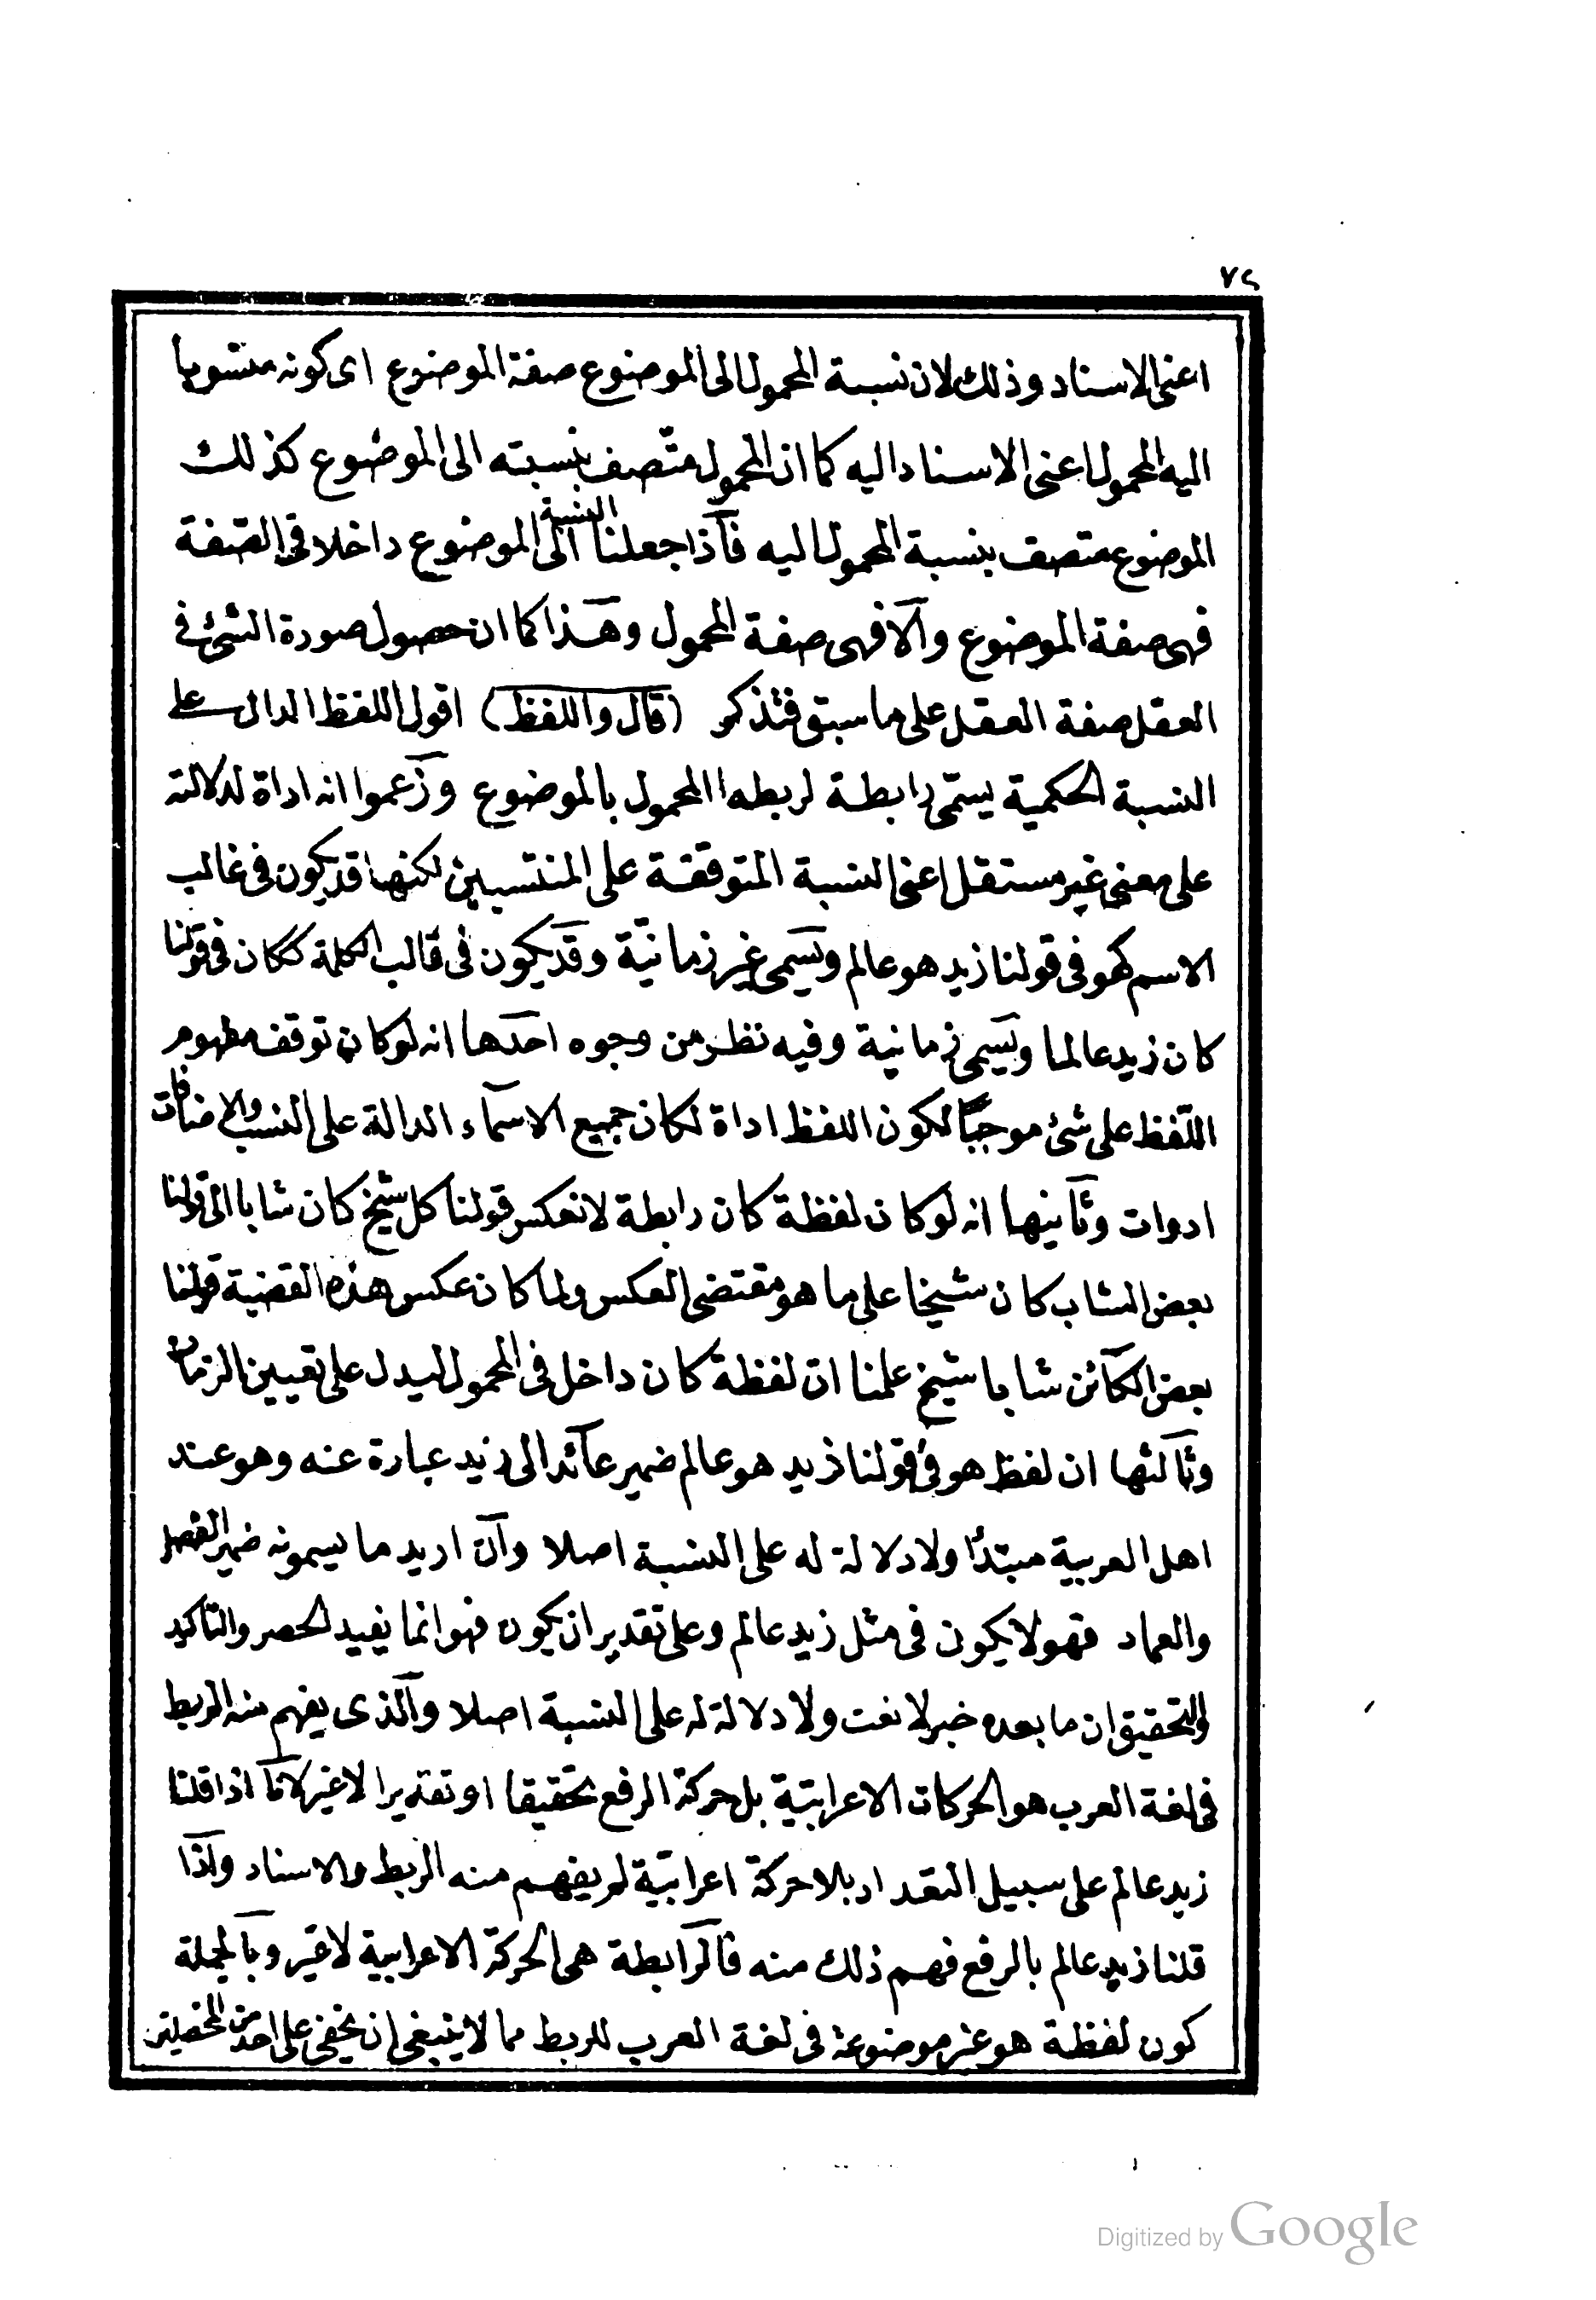 ٧٤
اعنى الاسناد وذلك لان نسبة المحمول الى الموضوع صفة الموضوع اى كونه منسوبا
اليه المحمول اعنى الاسناد اليه كما ان المحمول متّصف بنسبته الى الموضوع كذلك
الموضوع متصف بنسبة المحمول اليه فاذا جعلنا النسبة الى الموضوع داخلا فى الصّفة
فهى صفة الموضوع والا فهى صفة المحمول وهذا كما ان حصول صورة الشئ فى
العقل صفة العقل على ما سبق فتذكر (قال واللفظ) اقول اللفظ الدال على
النسبة الحكمية يسمّى رابطة لربطها المحمول بالموضوع وزعموا انه اداة لدلالته
على معنى غير مستقل اعنى النسبة المتوقفة على المنتسبين لكنها قد يكون فى غالب
الاسم كهو فى قولنا زيد هو عالم ويسمى غير زمانيّة وقد يكون فى قالب الكلمة ككان فى قولنا
كان زيد عالما ويسمى زمانية وفيه نظر من وجوه احدها انه لو كان توقف مفهوم
اللّفظ على شئ موجبًا لكون اللفظ اداة لكان جميع الاسماء الدالة على النسب والاضافات
ادوات وثانيها انه لو كان لفظة كان رابطة لانعكس قولنا كل شيخ كان شابا الى قولنا
بعض الشاب كان شيخا على ما هو مقتضى العكس ولما كان عكس هذه القضية قولنا
بعض الكائن شابا شيخ علمنا ان لفظة كان داخل فى المحمول ليدل على تعيين الزمان
وثالثها ان لفظ هو فى قولنا زيد هو عالم ضمير عائد الى زيد عبارة عنه وهو عند
اهل العربية مبتدأ ولا دلالة له على النسبة اصلا وان اريد ما يسمونه ضمير الفصل
والعماد فهو لا يكون فى مثل زيد عالم وعلى تقدير ان يكون فهو انما يفيد الحصر والتاكيد
والتحقيق ان ما بعده خبر لا نعت ولا دلالة له على النسبة اصلا والذى يفهم منه الربط
فى لغة العرب هو الحركات الاعرابيّة بل حركة الرفع تحقيقا او تقديرا لا غير لانا اذا قلنا
زيد عالم على سبيل التعداد بلا حركة اعرابيّة لم يفهم منه الربط والاسناد واذا
قلنا زيد عالم بالرفع فهم ذلك منه فالرابطة هى الحركة الاعرابية لا غير وبالجملة
كون لفظة هو غير موضوعة فى لغة العرب للربط مما لا ينبغى ان يخفى على احد من المحصلين
Digitized by Google